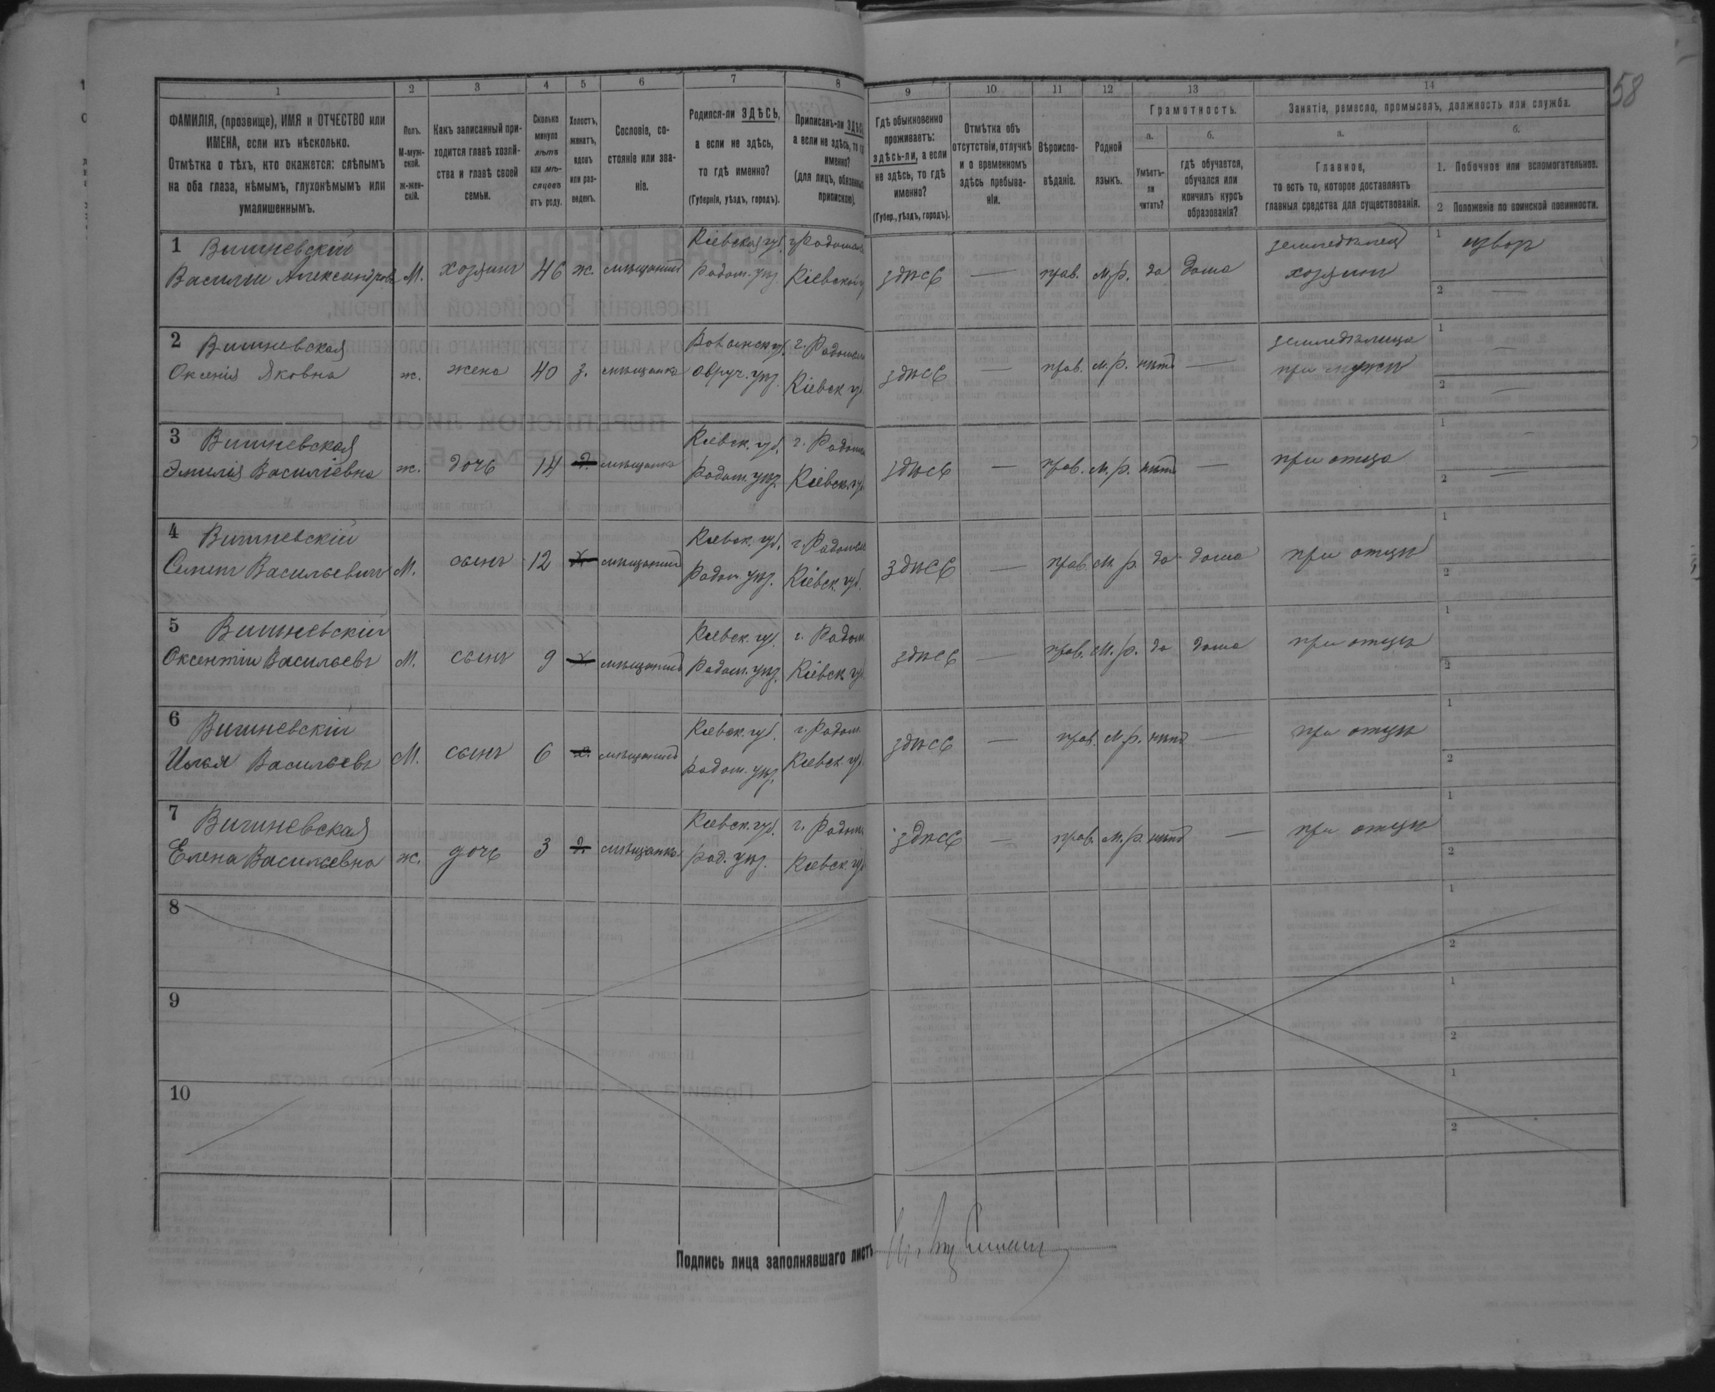 58
1 2 3 4 5 6 7 8 9 10 11 12 13 14
ФАМИЛІЯ, (прозвище), ИМЯ и ОТЧЕСТВО или
ИМЕНА, если ихъ нѣсколько.
Отмѣтка о тѣхъ, кто окажется: слѣпымъ
на оба глаза, нѣмымъ, глухонѣмымъ или
умалишеннымъ.
Полъ.
М-муж-
ской.
Ж-жен-
скій.
Какъ записанный при-
ходится главѣ хозяй-
ства и главѣ своей
семьи.
Сколько
минуло
лѣтъ
или мѣ-
сяцевъ
отъ роду.
Холостъ,
женатъ,
вдовъ
или раз-
веденъ.
Сословіе, со-
стояніе или зва-
ніе.
Родился-ли ЗДѢСЬ,
а если не здѣсь,
то гдѣ именно?
(Губернія, уѣздъ, городъ).
Приписанъ-ли
а если не здѣсь, то
именно?
(для лицъ,
припискою).
Гдѣ обыкновенно
проживаетъ:
здѣсь-ли, а если
не здѣсь, то гдѣ
именно?
(Губер., уѣздъ, городъ).
Отмѣтка объ
отсутствіи, отлучкѣ
и о временномъ
здѣсь пребыва-
ніи.
Вѣроиспо-
вѣданіе.
Родной
языкъ.
Грамотность.
а. б.
Умѣетъ-
ли
читать?
гдѣ обучается,
обучался или
кончилъ курсъ
образованія?
Занятіе, ремесло, промыселъ, должность или служба.
а. б.
Главное,
то есть то, которое доставляетъ
главныя средства для существованія.
1. Побочное или вспомогательное.
2 Положеніе по воинской повинности.
1 Вишневскій Кіевская губ. земледѣлец 1
Василій Александров М. хозяин 46 ж. Радом. уѣз. здѣсь — прав. м.р. да дома хозяин 2 —
2 Вишневская г. Радом. земледѣлица 1 —
Оксенія Яковна ж. жена 40 з. мѣщанка овруч. уѣз. Кіевск. здѣсь — прав. м.р. нѣтъ — при мужѣ 2 —
3 Вишневская Кіевск. губ. г. Радом. 1 —
Эмилія Василіевна ж. дочь 14 мѣщанка Радом. уѣз. Кіевск. здѣсь — прав. м.р. нѣтъ — при отца 2 —
4 Вишневскій Кіевск. губ. г. Радом. 1
Васильевич М. сынъ 12 мѣщанинъ Радом. уѣз. Кіевск. губ. здѣсь — прав. м.р. да дома при отцѣ 2
5 Вишневскій Кіевск. губ. г. Радом. 1
Оксентій Васильевъ М. сынъ 9 мѣщанинъ Радом. уѣз. Кіевск. здѣсь — прав. м.р. да дома при отцѣ 2
6 Вишневскій Кіевск. губ. г. Радом. 1
Илья Васильевъ М. сынъ 6 мѣщанинъ Радом. уѣз. Кіевск. здѣсь — прав. м.р. нѣтъ — при отцѣ 2
7 Вишневская Кіевск. губ. г. Радом. 1
Елена Васильевна ж. дочь 3 мѣщанка Рад. уѣз. Кіевск. здѣсь — прав. м.р. нѣтъ — при отцѣ 2
8 1
2
9 1
2
10 1
2
Подпись лица заполнявшаго листъ